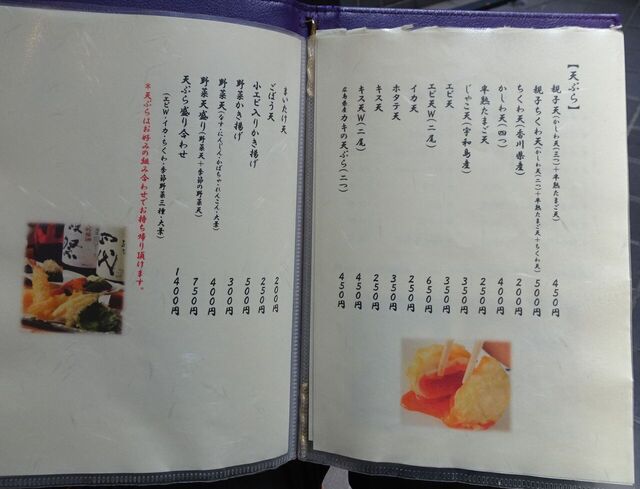 【天ぷら】
親子天(かしわ天(三つ)+半熟たまご天) 450円
親子ちくわ天(かしわ天(二つ)+半熟たまご天+ちくわ天) 500円
ちくわ天(香川県産) 200円
かしわ天(四つ) 400円
半熟たまご天 250円
じゃこ天(宇和島産) 350円
エビ天 350円
エビ天W(二尾) 650円
イカ天 250円
ホタテ天 350円
キス天 250円
キス天W(二尾) 450円
広島県産カキの天ぷら(二つ) 450円
まいたけ天 200円
ごぼう天 250円
小エビ入りかき揚げ 500円
野菜かき揚げ 300円
野菜天(なす・にんじん・かぼちゃ・れんこん・大葉) 400円
野菜天盛り(野菜天+季節の野菜天) 750円
天ぷら盛り合わせ 1400円
(エビW・イカ・ちくわ・季節野菜三種・大葉)
※天ぷらはお好みの組み合わせでお持ち帰り頂けます。